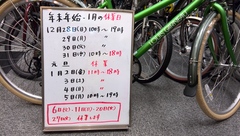 年末年始・1月の休業日
12月28日(日)10時〜19時
29日(月) 〃
30日(火) 〃
31日(水)10時〜18時
元旦 休業
1月2日(金)11時〜18時
3日(土) 〃
4日(日) 〃
5日(月)10時〜19時
6日(火)・
29(木) 休業です